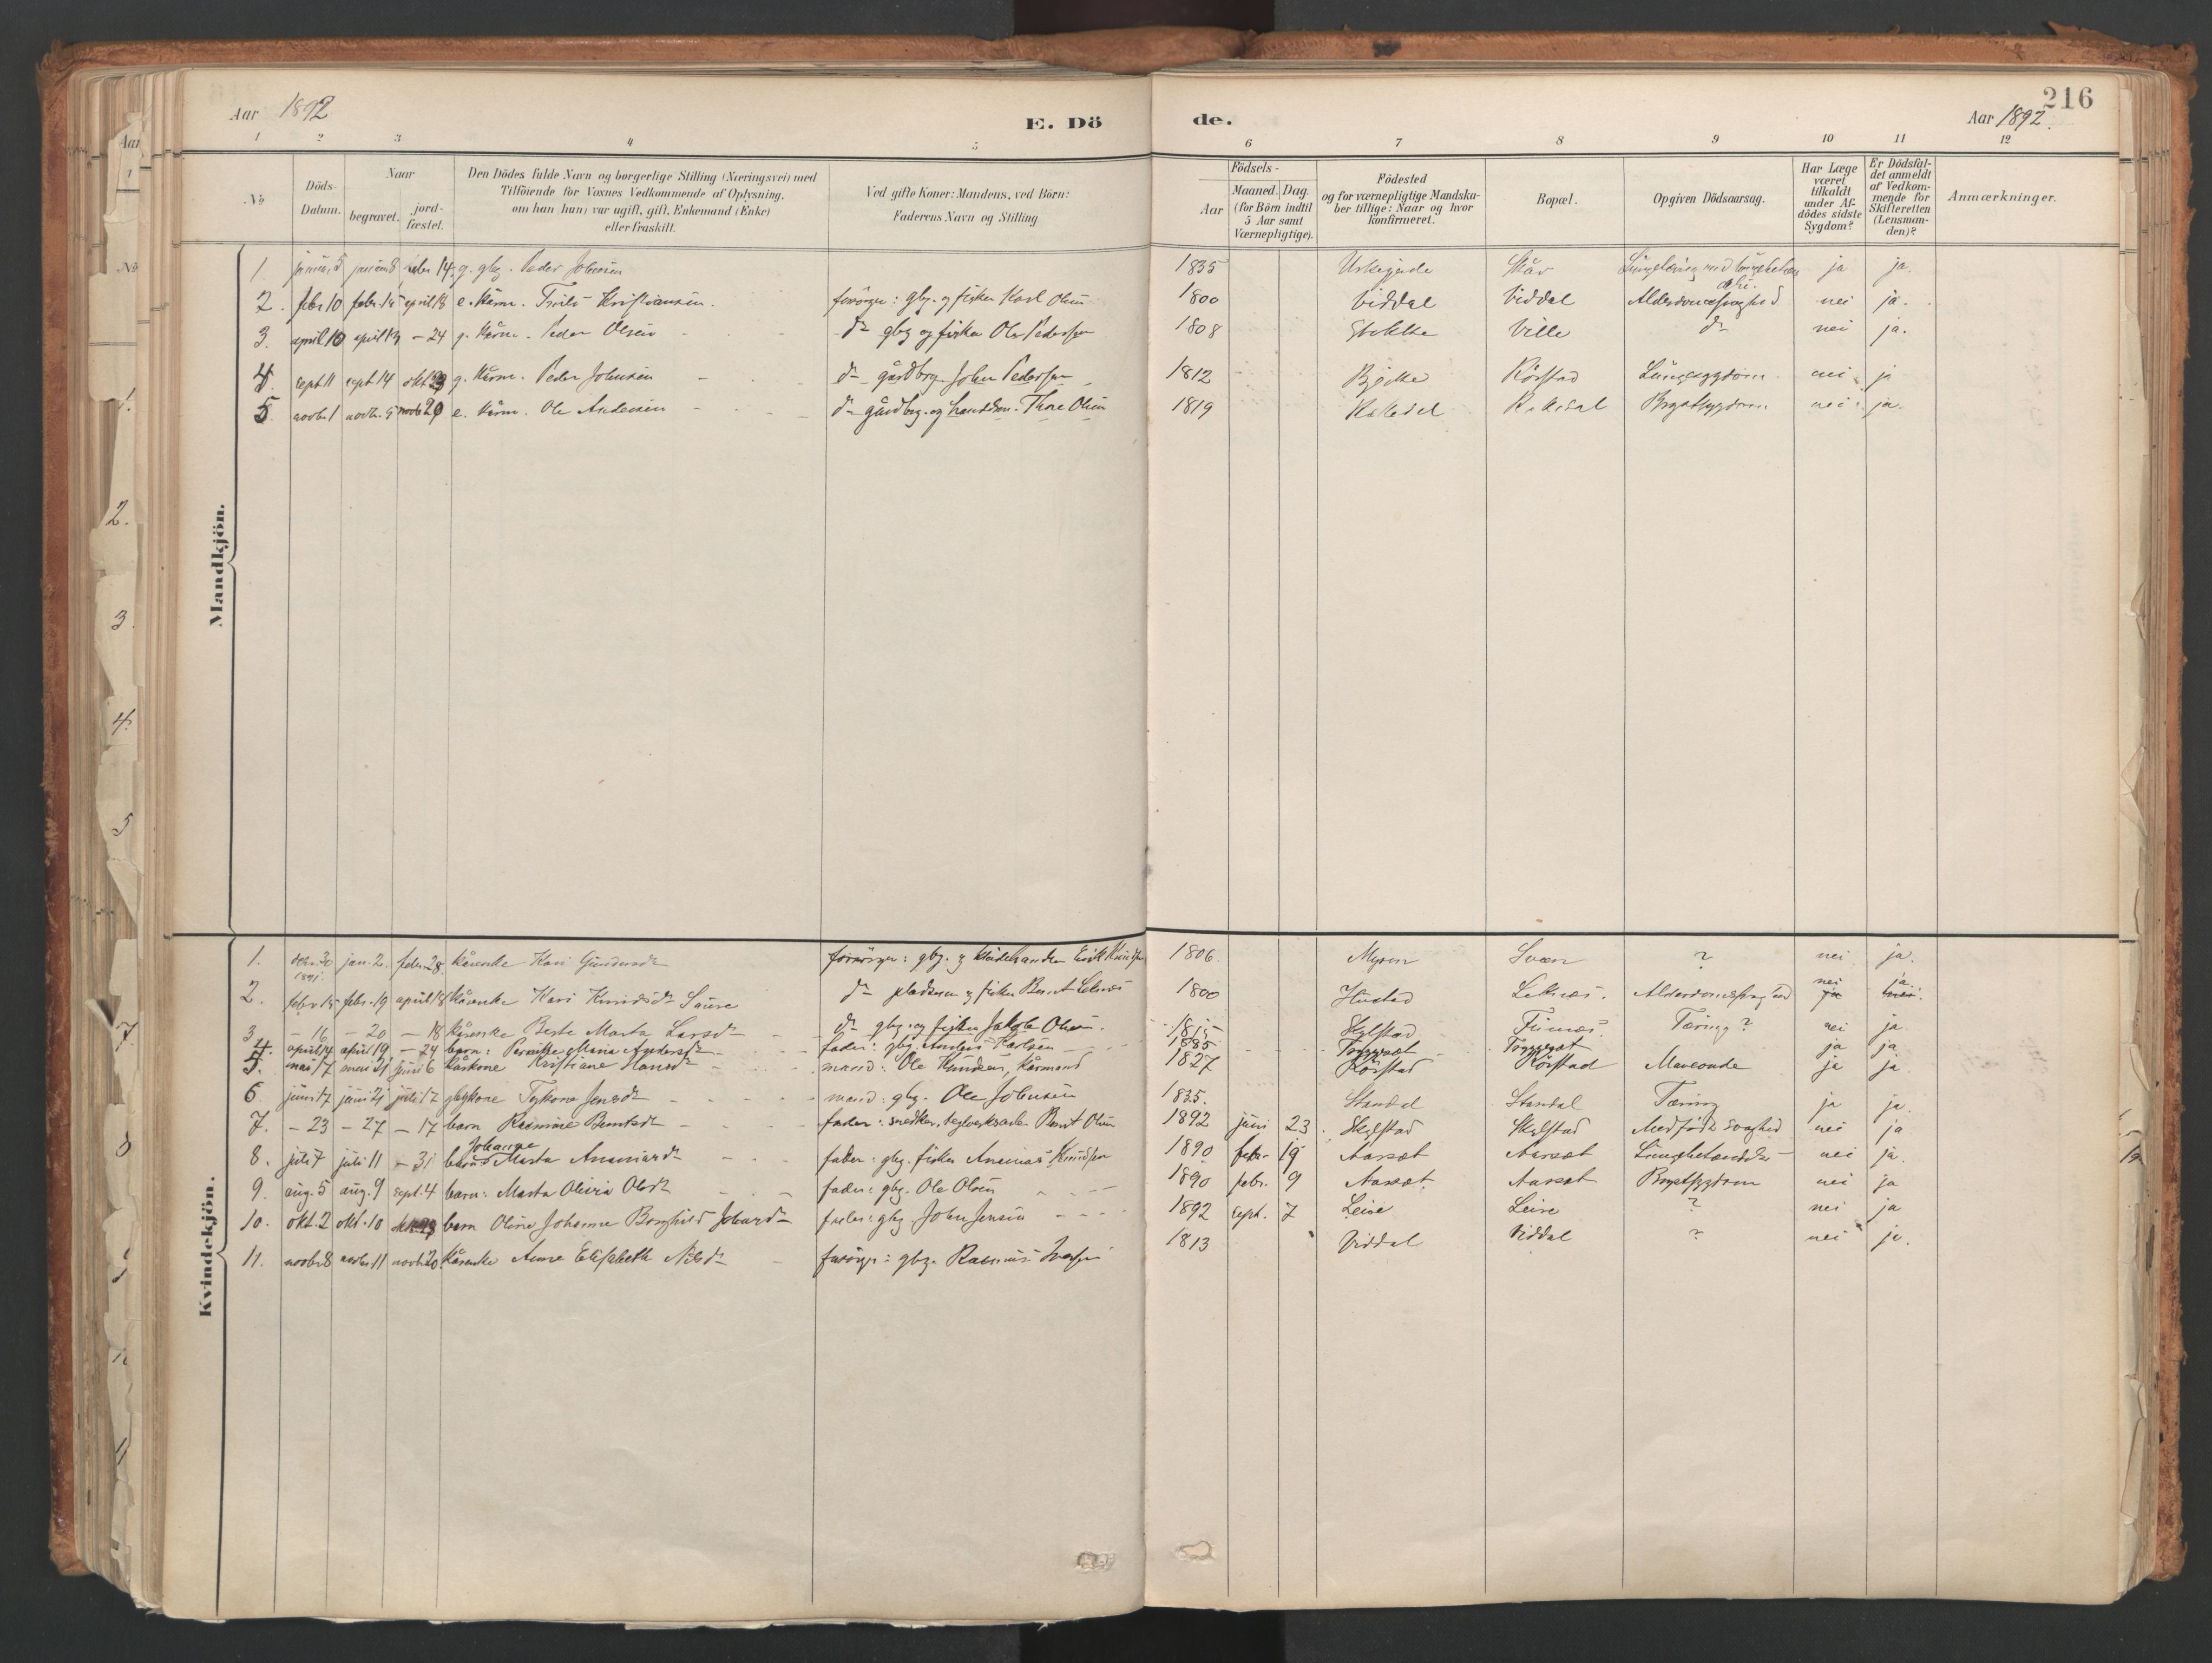 216
Aar 1892
E. Dö
de.
Aar 1892.
1 2 3 4 5 6 7 8 9 10 11 12
No
Döds-
Datum.
Naar
begravet.
jord-
fæstet.
Den Dödes fulde Navn og borgerlige Stilling (Næringsvei) med
Tilföiende for Voxnes Vedkommende af Oplysning,
om han (hun) var ugift, gift, Enkemand (Enke)
eller fraskilt.
Ved gifte Koner: Mandens, ved Börn:
Faderens Navn og Stilling
Födsels-
Aar
Maaned. Dag.
(for Börn indtil
5 Aar samt
Værnepligtige).
Födested
og for værnepligtige Mandska-
ber tillige: Naar og hvor
konfirmeret.
Bopæl.
Opgiven Dödsaarsag.
Har Læge
været
tilkaldt
under Af-
dödes sidste
Sygdom?
Er Dödsfal-
det anmeldt
af Vedkom-
mende for
Skifteretten
(Lensman-
den)?
Anmærkninger.
Mandkjön.
1. 14. g. gbr. Peder Johnsen 1835 Urkegjerde Skår ja ja.
2. febr 10 febr. 15 april 18 e. kårm. Kristiansen. forsörger: gbr. og fisker Karl Olsen 1800 Viddal Viddal Alderdomssvaghed nei ja.
3. april 10 april 19 - 24 g. kårm. Peder Olsen do gbr og fisker Ole Pedersen 1808 Stokke Ville do nei ja.
4. sept 11 sept 14 okt 23 g. kårm. Peder Johnsen do gårdbrg. John Pedersen 1812 Bjørke Rörstad Lungesygdom nei ja
5. novbr 1 novbr. 5 novb 20 e. kårm. Ole Andersen do gårdbrg. og Thore Olsen 1819 Rekedal Rekedal Brystsygdom nei ja.
Kvindekjön.
1. decr. 30 1891. jan. 2. febr. 28. kårenke Kari Gundersdr forsörger: gbr. og Erik Knudsen 1806. Myren Svæn ? nei ja.
2. febr 15 febr. 19 april 18 kårenke Kari Knudsdr Saure do pladsm. og fisker Bernt 1800 Hustad Alderdomssvaghed nei ja.
3 - 16 - 20 - 18 kårenke Berte Marta Larsdr do gbr. og fisker Jakob Olsen. 1815 Skylstad Tæring? nei ja.
4. april 14 april 19 - 24 barn: Pernille Maria Andersdr fader: gbr. Anders Karlsen 1885 ja ja
5. mai 17 mai 21 juni 6 kårkone Kristiane Hansdr mand: Ole Knudsen, kårmand 1827 Rörstad Rörstad Maveonde ja ja
6. juni 17 juni 21 juli 17 gbrkone Jensdr mand: gbr. Ole Johnsen 1835. Standal Standal Tæring ja ja.
7. - 23 - 27 - 17 barn Rasmine Berntsdr fader: snedker, Bernt Olsen 1892 juni 23 Skylstad Skylstad Medfödt Svaghed nei ja
8. juli 7 juli 11 - 31 barn Johanne Marta Ananiasdr fader: gbr. fisker Ananias Knudsen 1890 febr. 19 Aarsæt Aarsæt nei ja.
9. aug. 5 aug. 9 sept. 4 barn: Marta Olivia Olsdr fader: gbr. Ole Olsen 1890 febr. 9 Aarsæt Aarsæt Brystsygdom nei ja
10. okt. 2 okt. 10 23 barn Oline Johanne Borghild Johnsdr fader: gbr John Jensen 1892 sept. 7 Leire Leire ? nei ja
11. novbr 8 novbr 11 novb 20. kårenke Anne Elisabeth Nilsdr forsörger: gbr. Rasmus 1813 Viddal Viddal ? nei ja.